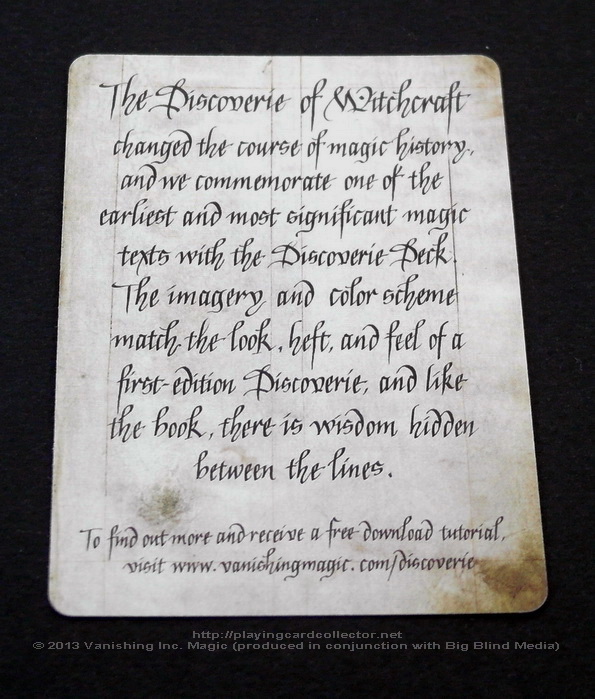 The Discoverie of Witchcraft
changed the course of magic history,
and we commemorate one of the
earliest and most significant magic
texts with the Discoverie Deck.
The imagery and color scheme
match the look, heft, and feel of a
first-edition Discoverie, and like
the book, there is wisdom hidden
between the lines.
To find out more and receive a free download tutorial,
visit www.vanishingmagic.com/discoverie
http://playingcardcollector.net
© 2013 Vanishing Inc. Magic (produced in conjunction with Big Blind Media)